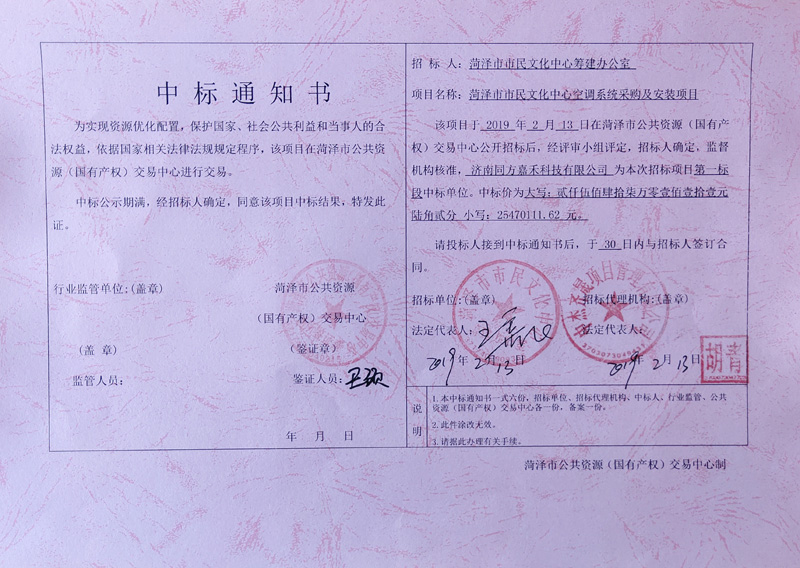 中标通知书
为实现资源优化配置，保护国家、社会公共利益和当事人的合
法权益，依据国家相关法律法规规定程序，该项目在菏泽市公共资
源（国有产权）交易中心进行交易。
中标公示期满，经招标人确定，同意该项目中标结果，特发此
证。
行业监管单位:(盖章)
菏泽市公共资源
（国有产权）交易中心
(盖 章)
(签证章)
监管人员:
签证人员:
年 月 日
招 标 人: 菏泽市市民文化中心筹建办公室
项目名称: 菏泽市市民文化中心空调系统采购及安装项目
该项目于 2019 年 2 月 13 日在菏泽市公共资源（国有产
权）交易中心公开招标后，经评审小组评定，招标人确定、监督
机构核准，济南同方嘉禾科技有限公司 为本次招标项目第一标
段中标单位。中标价为大写: 贰仟伍佰肆拾柒万零壹佰壹拾壹元
陆角贰分 小写: 25470111.62 元。
请投标人接到中标通知书后，于 30 日内与招标人签订合
同。
招标单位:(盖章)
招标代理机构:(盖章)
法定代表人:
法定代表人:
2019年 2月 13日
2019年 2月 13日
胡青
说明
1.本中标通知书一式六份，招标单位、招标代理机构、中标人、行业监管、公共
资源（国有产权）交易中心各一份，备案一份。
2.此件涂改无效。
3.请据此办理有关手续。
菏泽市公共资源（国有产权）交易中心制